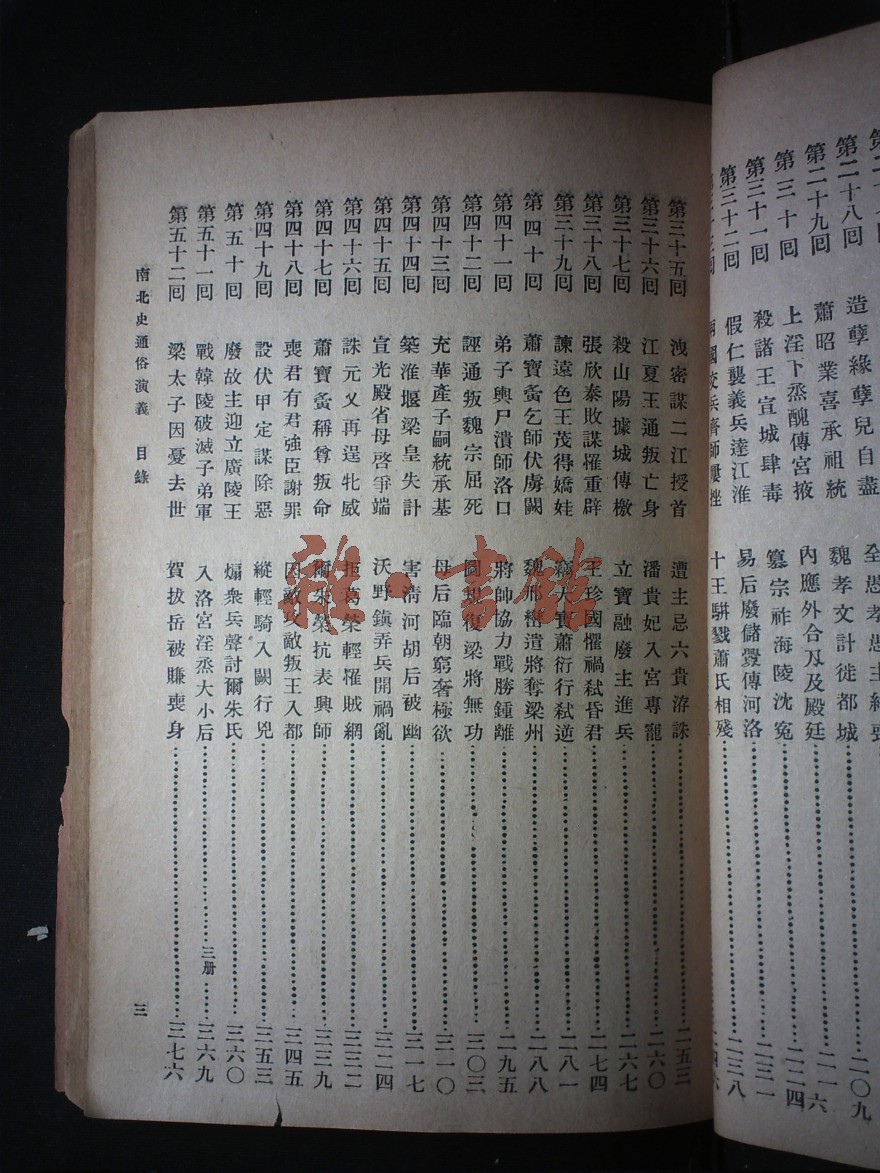 第二十八回　造孽緣孽兒自盡　全愚孝愚主終喪
第二十九回　蕭昭業喜承祖統　魏孝文計徙都城 二〇九
第三十回　上淫下烝醜傳宮掖　內應外合刄及殿廷 二一六
第三十一回　殺諸王宣城肆毒　篡宗祚海陵沈冤 二二四
第三十二回　假仁襲義兵達江淮　易后廢儲釁傳河洛 二三一
兩國交兵齊師屢挫　十王駢戮蕭氏相殘 二三八
第三十五回　洩密謀二江授首　遭主忌六貴洊誅 二五三
第三十六回　江夏王通叛亡身　潘貴妃入宮專寵 二六〇
第三十七回　殺山陽據城傳檄　立寶融廢主進兵 二六七
第三十八回　張欣泰敗謀罹重辟　王珍國懼禍弒昏君 二七四
第三十九回　諫遠色王茂得嬌娃　竊大寶蕭衍行弒逆 二八一
第四十回　蕭寶夤乞師伏虜闕　魏邢巒遣將奪梁州 二八八
第四十一回　弟子輿尸潰師洛口　將帥協力戰勝鍾離 二九五
第四十二回　誣通叛魏宗屈死　圖規復梁將無功 三〇三
第四十三回　充華產子嗣統承基　母后臨朝窮奢極欲 三一〇
第四十四回　築淮堰梁皇失計　害清河胡后被幽 三一七
第四十五回　宣光殿省母啓爭端　沃野鎮弄兵開禍亂 三二四
第四十六回　誅元乂再逞牝威　拒葛榮輕罹賊網 三三二
第四十七回　蕭寶夤稱尊叛命　爾朱榮抗表興師 三三九
第四十八回　喪君有君強臣謝罪　因敵攻敵叛王入都 三四五
第四十九回　設伏甲定謀除惡　縱輕騎入闕行兇 三五三
第五十回　廢故主迎立廣陵王　煽衆兵聲討爾朱氏 三六〇
第五十一回　戰韓陵破滅子弟軍　入洛宮淫烝大小后 三册 三六九
第五十二回　梁太子因憂去世　賀拔岳被賺喪身 三七六
南北史通俗演義　目錄　三
雜·書館